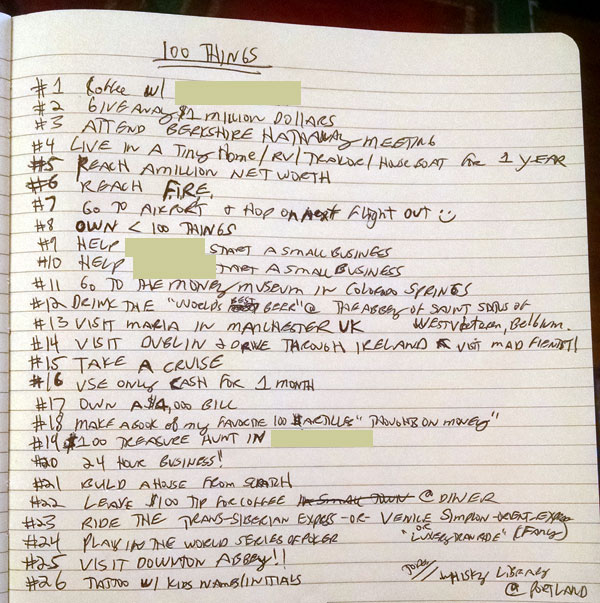 100 THINGS
#1 Coffee w/
#2 GIVE AWAY $1 MILLION DOLLARS
#3 ATTEND BERKSHIRE HATHAWAY MEETING
#4 LIVE IN A TINY HOME/RV/TRAILOR/HOUSE BOAT for 1 YEAR
#5 REACH A MILLION NET WORTH
#6 REACH FIRE.
#7 GO TO AIRPORT & HOP ON next Flight OUT
#8 OWN < 100 THINGS
#9 HELP START A SMALL BUSINESS
#10 HELP START A SMALL BUSINESS
#11 GO TO THE MONEY MUSEUM IN COLORADO SPRINGS
#12 DRINK THE "WORLDS BEST BEER" @ THE ABBEY OF SAINT SIXTUS OF
#13 VISIT MARIA IN MANCHESTER UK WESTVLETEREN, BELGIUM.
#14 VISIT DUBLIN & DRIVE THROUGH IRELAND VISIT MAD FIENTIST!
#15 TAKE A CRUISE
#16 USE ONLY CASH FOR 1 MONTH
#17 OWN A $ BILL
#18 MAKE A BOOK OF MY FAVORITE 100 $ ARTICLES "THOUGHTS ON MONEY"
#19 $100 TREASURE HUNT IN
#20 24 HOUR BUSINESS!
#21 BUILD A HOUSE FROM SCRATCH
#22 LEAVE $100 TIP FOR COFFEE IN SMALL TOWN @ DINER
#23 RIDE THE TRANS-SIBERIAN EXPRESS -OR- VENICE SIMPLON-ORIENT-EXPRESS
OR
#24 PLAY IN THE WORLD SERIES OF POKER "LUXERY TRAIN RIDE" (FANCY)
#25 VISIT DOWNTON ABBEY!!
#26 TATTOO W/ KIDS NAMES/INITIALS
WHISKY LIBRARY
@ PORTLAND